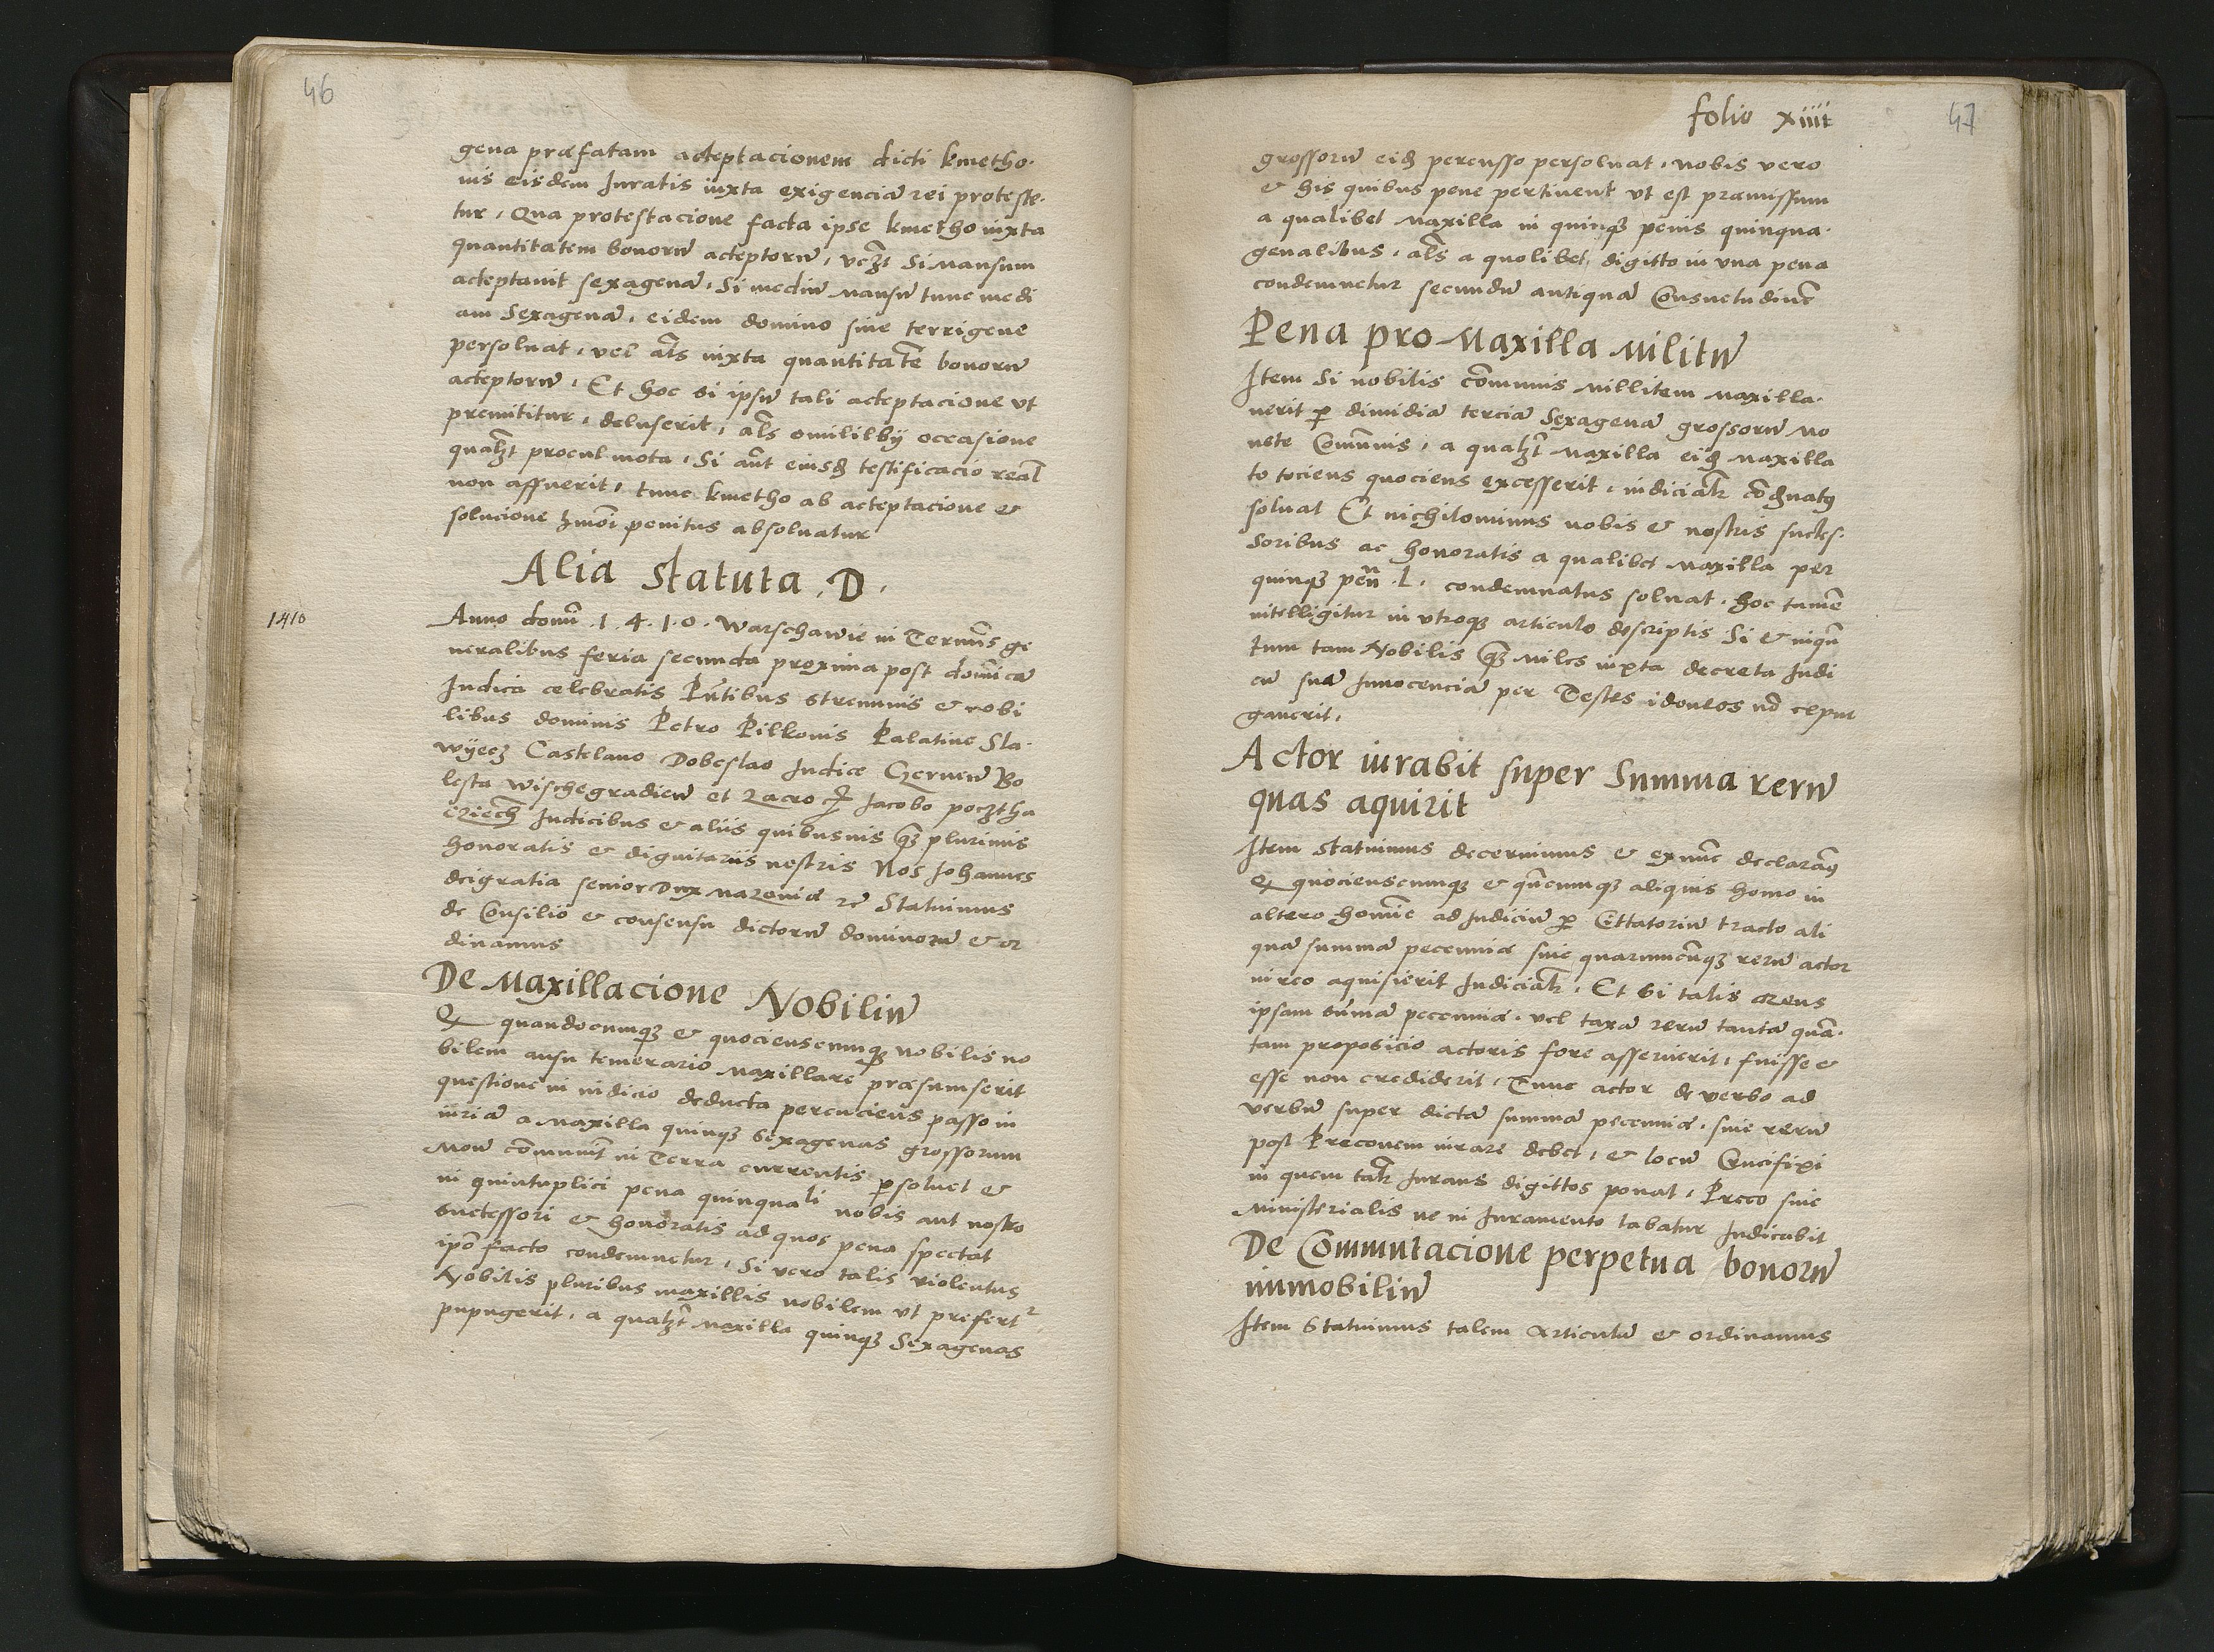 46
gena præfatam acteptacionem dicti kmetho-
nis eisdem Juratis iuxta exigenciā rei proteste-
tur, Qua protestacione facta ipse kmetho iuxta
quantitatem bonorū acteptorū, vcꝫt Si Mansum
acteptauit sexagenā, Si mediū Mansū tunc medi
am Sexagenā, eidem domino siue terrigene
persoluat, vel als̄ iuxta quantitatē bonorū
acteptorū, Et hoc si ipsū tali acteptacione vt
premititur, deluserit, als̄ omililby occasione
qualꝫt procul mota, Si aūt eiusꝺ testificacio real̄
non affuerit, tunc kmetho ab acteptacione &
solucione hmōi penitus absoluatur
Alia Statuta .D.
1410
Anno domī .1.4.1.0. Warschawie in Termīs ge
neralibus feria secunda proxima post domīcā
Iudica celebratis Pn̄tibus strenuis & nobi
libus dominis Petro Pilkonis Palatino Sla-
wÿecꝫ Castelano Dobeslao Iudice Czernen̄ Bo
lesta Wischegradien̄ et Zacro Jacobo pocztha
cziech̄ Iudicibus & aliis quibusuis qꝫ plurimis
honoratis & dignitariis nostris Nos Johannes
deigratia senior Dux Mazouiæ ꝛc̄ Statuimus
de Consilio & consensu dictorū dominorū & or
dinamus
De Maxillacione Nobiliū
Q quandocumqꝫ & quocienscumqꝫ nobilis no
bilem ausu temerario Maxillare præsumserit
questione in iudicio deducta percuciens passo in
iuriā a Maxilla quinqꝫ Sexagenas grossorum
Mon̄ com̄unit̄ in Terra currentis ꝑsoluet &
in quintuplici pena quinquali nobis aut nostro
suctessori & honoratis ad quos pena spectat
ipō facto condemnetur, Si vero talis violentus
Nobilis pluribus maxillis nobilem vt prefert²
pupugerit, a qualꝫt Maxilla quinqꝫ Sexagenas
folio xiiii
47
grossorū eiꝺ percusso persoluat, nobis vero
& his quibus pene pertinent vt est præmissum
a qualibet Maxilla in quinqꝫ penis quinqua-
genalibus, als̄ a quolibet digitto in vna pena
condemnetur secundū antiquā Consuetudinē
Pena pro Maxilla Militū
Item Si nobilis cōmunis Millitem Maxilla-
uerit ꝑ dimidiā terciā Sexagenā grossorū Mo
nete Com̄unis, a qualꝫt Maxilla eiꝺ Maxilla
to tociens quociens excesserit, iudicialr̄ cōꝺnatꝰ
soluat Et nichilominus nobis & nostris suctes-
soribus ac honoratis a qualibet Maxilla per
quinqꝫ pen̄ .L. condemnatus soluat. Hoc tamē
intelligitur in vtroqꝫ articulo descriptis Si & inqū
tum tam Nobilis qꝫ Miles iuxta decreta Iudi
cū suā Innocenciā per Testes idoneos nō expur
gauerit,
Actor iurabit super Summa rerū
quas aquirit
Item statuimus decernimus & exnūc declaramꝰ
Q quocienscumqꝫ & qn̄cumqꝫ aliquis homo in
altero homīe ad Iudiciū ꝑ Cittatoriū tracto ali
quā summā pecuniæ siue quarumcūqꝫ rerū actor
in reo aquisierit Iudicialr̄, Et Si talis reus
ipsam sūmā pecuniæ. vel taxā rerū tantā quā-
tam proposicio actoris fore asseruerit, fuisse &
esse non crediderit, Tunc actor de verbo ad
verbū super dictā summā pecuniæ, siue rerū
post Preconem iurare debet, & locū Crucifixi
in quem talr̄ Iurans digittos ponat, Preco siue
Ministerialis ne in Iuramento labatur Iudicabit
De Commutacione perpetua bonorū
immobiliū
Item Statuimus talem articulū & ordinamus